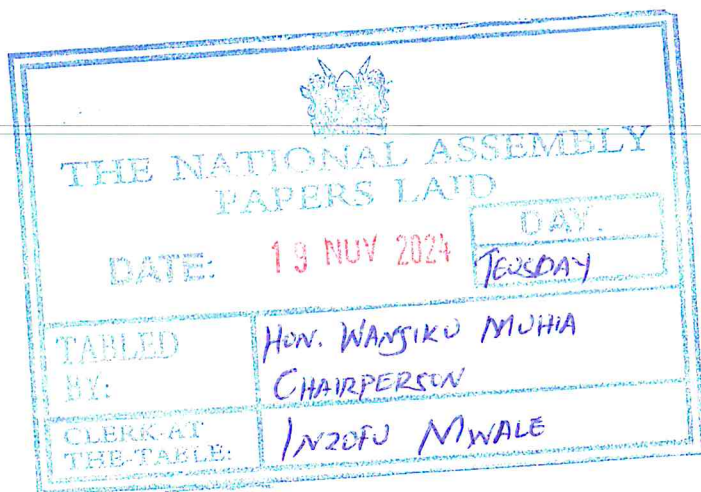 THE NATIONAL ASSEMBLY
PAPERS LAID
DATE: 19 NOV 2024
DAY.
TEUSDAY
TABLED BY:
HON. WANJIKU MUHIA
CHAIRPERSON
CLERK-AT THE-TABLE:
INZOFU MWALE